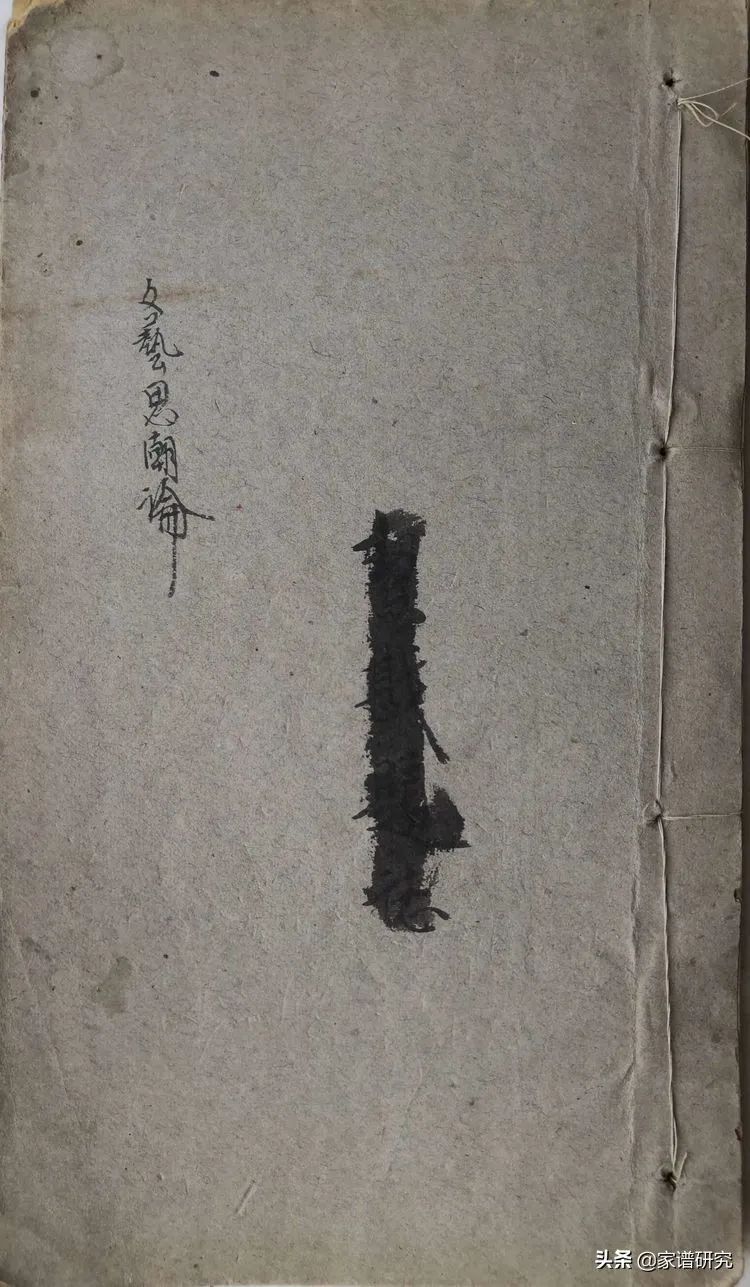 文藝思潮論
头条 @家谱研究